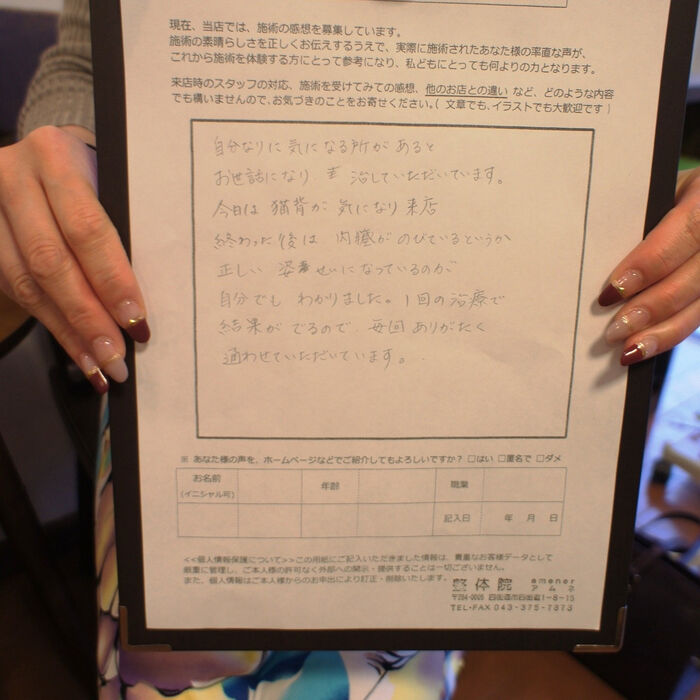 現在、当店では、施術の感想を募集しています。
施術の素晴らしさを正しくお伝えするうえで、実際に施術されたあなた様の率直な声が、
これから施術を体験する方にとって参考になり、私どもにとっても何よりの力となります。
来店時のスタッフの対応、施術を受けてみての感想、他のお店との違い など、どのような内容
でも構いませんので、お気づきのことをお寄せください。( 文章でも、イラストでも大歓迎です )
自分なりに気になる所があると
お世話になり 治していただいています。
今日は 猫背が 気になり 来店
終わった後は 内臓が のびているというか
正しい 姿せいになっているのが
自分でも わかりました。1回の治療で
結果が でるので 毎回 ありがたく
通わせていただいています。
※ あなた様の声を、ホームページなどでご紹介してもよろしいですか? □はい □匿名で □ダメ
お名前 年齢 職業
(イニシャル可)
記入日 年 月 日
<<個人情報保護について>>この用紙にご記入いただきました情報は、貴重なお客様データとして
厳重に管理し、ご本人様の許可なく外部への開示・提供することは一切ございません。
また、個人情報はご本人様からのお申出により訂正・削除いたします。
整体院 amener アムネ
〒284-0005 四街道市四街道1-8-15
TEL・FAX 043-375-7373